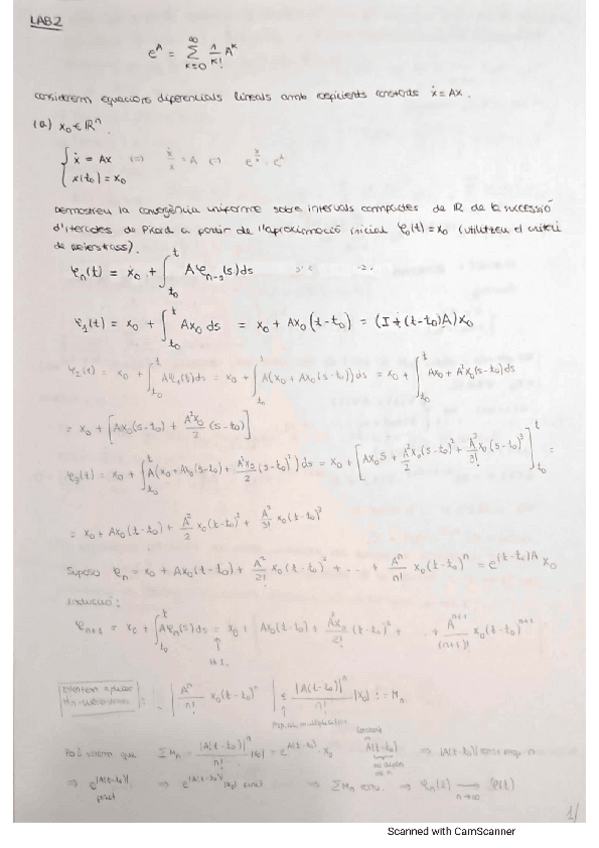 LAB 2
e^A = ∑_{k=0}^{∞} 1/k! A^k
considerem equacions diferencials lineals amb coeficients constants ẋ = Ax.
(a) x₀ ∈ ℝⁿ.
{ ẋ = Ax (=) ẋ/x = A
x(t₀) = x₀
Demostreu la convergència uniforme sobre intervals compactes de ℝ de la successió
d'iterades de Picard a partir de l'aproximació inicial φ₀(t) = x₀ (utilitzeu el criteri
de Weierstrass).
φₙ(t) = x₀ + ∫_{t₀}^{t} Aφₙ₋₁(s)ds
φ₁(t) = x₀ + ∫_{t₀}^{t} Ax₀ ds = x₀ + Ax₀(t-t₀) = (I+(t-t₀)A)x₀
φ₂(t) = x₀ + ∫_{t₀}^{t} Aφ₁(s)ds = x₀ + ∫_{t₀}^{t} A(x₀ + Ax₀(s-t₀))ds = x₀ + ∫_{t₀}^{t} Ax₀ + A²x₀(s-t₀)ds
= x₀ + [Ax₀(s-t₀) + A²x₀/2 (s-t₀)]
φ₃(t) = x₀ + ∫_{t₀}^{t} A(x₀ + Ax₀(s-t₀) + A²x₀/2 (s-t₀)²)ds = x₀ + [Ax₀s + A²/2 x₀(s-t₀)² + A³/3! x₀(s-t₀)³]_{t₀}^{t} =
= x₀ + Ax₀(t-t₀) + A²/2 x₀(t-t₀)² + A³/3! x₀(t-t₀)³
Suposo φₙ = x₀ + Ax₀(t-t₀) + A²/2! x₀(t-t₀)² + ... + Aⁿ/n! x₀(t-t₀)ⁿ = e^{(t-t₀)A} x₀
inducció:
φₙ₊₁ = x₀ + ∫_{t₀}^{t} Aφₙ(s)ds = x₀ + Ax₀(t-t₀) + A²x₀/2! (t-t₀)² + ... + Aⁿ⁺¹/(n+1)! x₀(t-t₀)ⁿ⁺¹
H.I.
| Aⁿ/n! x₀(t-t₀)ⁿ | ≤ |A(t-t₀)|ⁿ/n! |x₀| := Mₙ
∑Mₙ = |A(t-t₀)|ⁿ/n! |x₀| = e^{A(t-t₀)} · x₀
⇒ ∑Mₙ conv. ⇒ φₙ(t) → φ(t)
n→∞
1/
Scanned with CamScanner